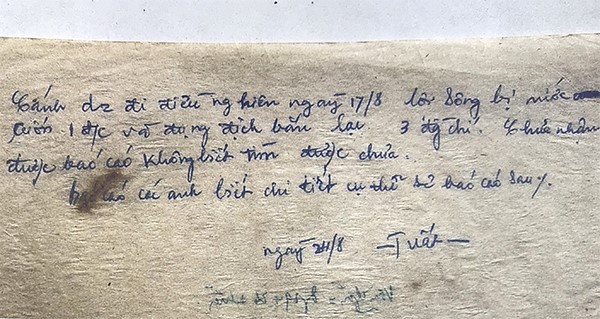 Cánh d2 đi điều nghiên ngaỳ 17/8 lội sông bị nước
cuốn 1 đ/c và đụng địch bắn lạc 3 đ/chí. Chưa nhận
được baó caó không biết tìm được chưa.
Baó caó các anh biết chi tiết cụ thể sẽ baó caó sau./.
ngaỳ /8 —Tuất—